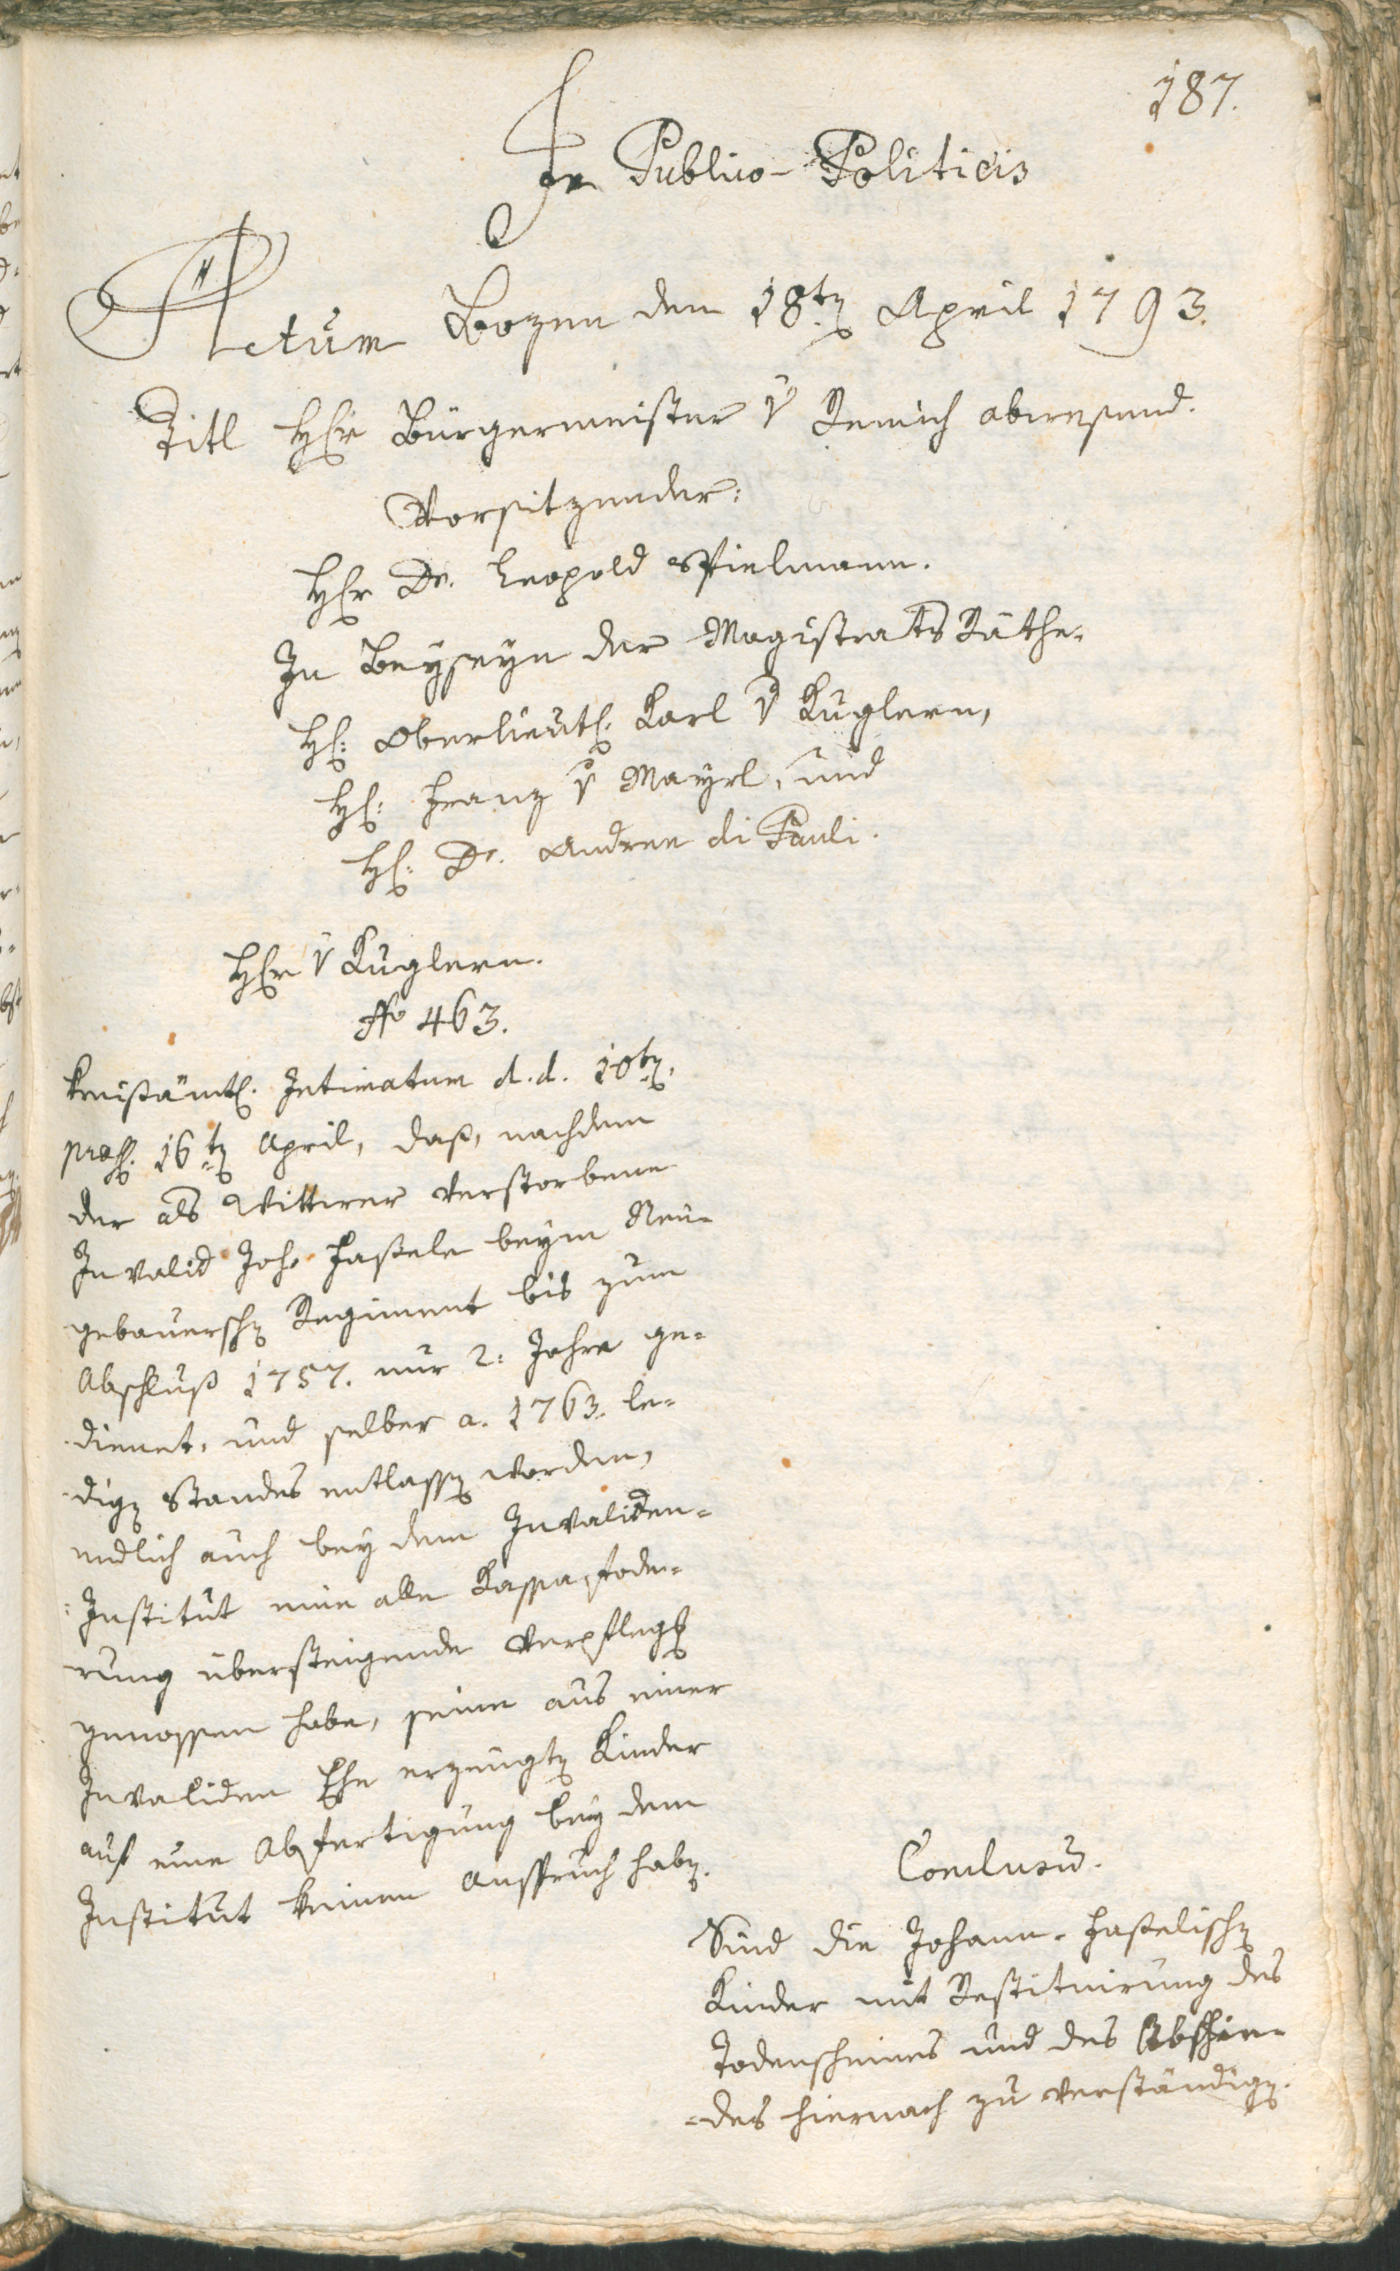 187.
In Publico-Politicis
Actum Bozen den 18ten April 1793.
Titl Herr Bürgermeister v Remich abwesend.
Vorsitzender:
Herr Dr. Leopold Spielmann.
In Beyseyn der Magistrats Räthe.
H: Oberlieut. Karl v Kuglern,
H: Franz v Mayrl, und
H: Dr. Andree di Pauli.
Herr v Kuglern.
No 463.
kreisämtl. Intimatum d. d. 10ten,
praes. 16ten April, daß, nachdem
der als Wittwer verstorbene
Invalid Joh. Hastele beym Neu-
gebauerschen Regiment bis zum
Abschluß 1757. nur 2: Jahre ge-
dienet, und selber a. 1763. le-
digen Standes entlassen worden,
endlich auch bey dem Invaliden-
Institut eine alle Kassa foder-
rung übersteigende Verpflegung
genossen habe, seine aus einer
Invaliden Ehe erzeugten Kinder
auf eine Abfertigung bey dem
Institut keinen Anspruch haben.
Conclusum.
Sind die Johann-Hastelischen
Kinder mit Restituirung des
Todenscheines und des Abschie-
des hiernach zu verständigen.